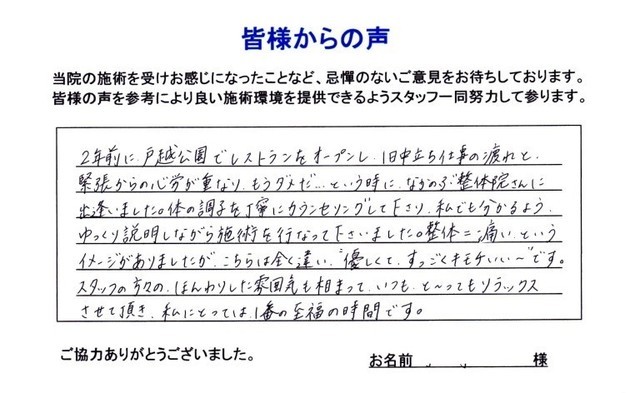 皆様からの声
当院の施術を受けお感じになったことなど、忌憚のないご意見をお待ちしております。
皆様の声を参考により良い施術環境を提供できるようスタッフ一同努力して参ります。
2年前に、戸越公園でレストランをオープンし、1日中立ち仕事の疲れと、
緊張からの心労が重なり、もうダメだ…という時に、ながのぶ整体院さんに
出逢いました。体の調子を丁寧にカウンセリングして下さり、私でも分かるよう、
ゆっくり説明しながら施術を行なって下さいました。整体=痛い、という
イメージがありましたが、こちらは全く違い、"優しくて、すっごくキモチいい〜"です。
スタッフの方々の、ほんわりした雰囲気も相まって、いつも、と〜ってもリラックス
させて頂き、私にとっては、1番の至福の時間です。
ご協力ありがとうございました。
お名前 様